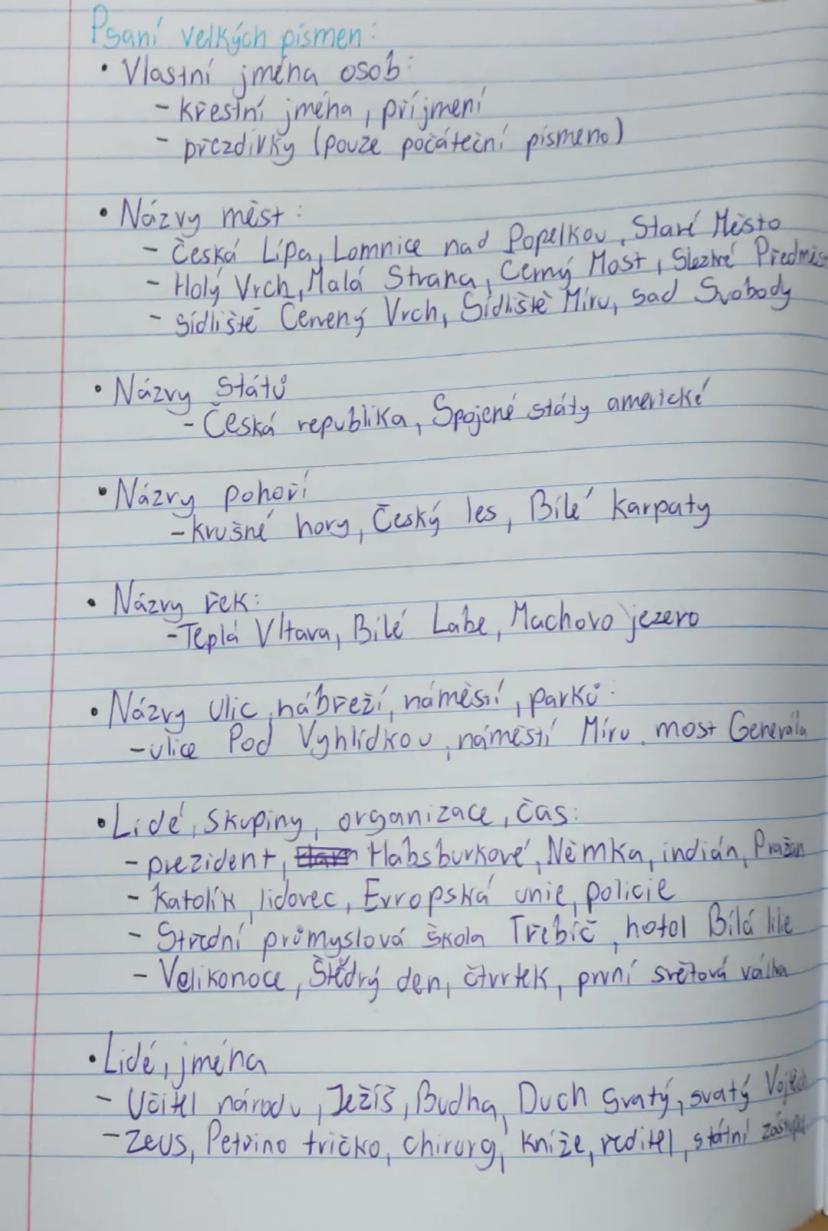 Psaní velkých písmen:
• Vlastní jména osob:
- křestní jména, příjmení
- přezdívky (pouze počáteční písmeno)
• Názvy měst:
- Česká Lípa, Lomnice nad Popelkou, Staré Město
- Holý Vrch, Malá Strana, Černý Most, Slezké Předměs
- sídliště Červený Vrch, Sídliště Míru, sad Svobody
• Názvy států
- Česká republika, Spojené státy americké
• Názvy pohoří
- Krušné hory, Český les, Bílé Karpaty
• Názvy řek:
- Teplá Vltava, Bílé Labe, Machovo jezero
• Názvy ulic, nábřeží, náměstí, parků:
- ulice Pod Vyhlídkou, náměstí Míru, most Generála
• Lidé, skupiny, organizace, čas:
- prezident, Habsburkové, Němka, indián, Pražan
- Katolík, lidovec, Evropská unie, policie
- Střední průmyslová škola Třebíč, hotel Bílá lilie
- Velikonoce, Štědrý den, čtvrtek, první světová válka
• Lidé, jména
- Učitel národu, Ježíš, Budha, Duch Svatý, svatý Vojtěch
- Zeus, Petrino tričko, chirurg, kníže, ředitel, státní